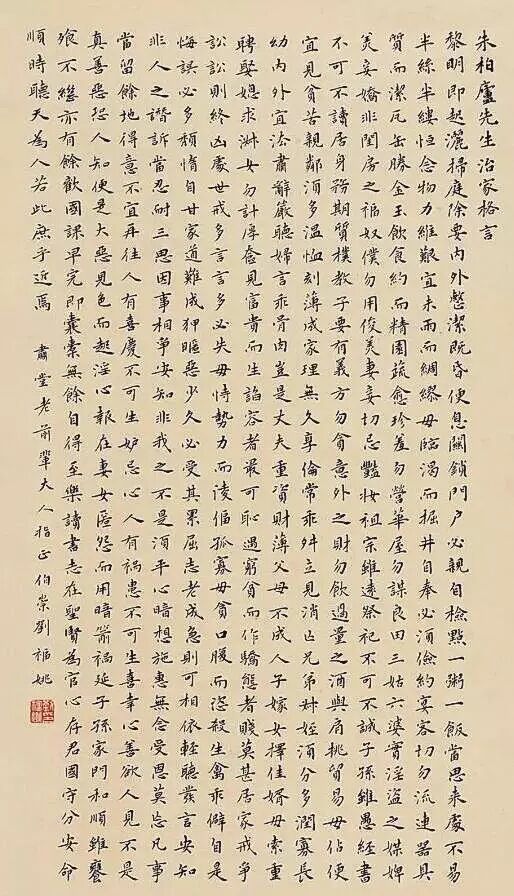 朱柏廬先生治家格言
黎明即起灑掃庭除要內外整潔既昏便息關鎖門戶必親自檢點一粥一飯當思來處不易
半絲半縷恒念物力維艱宜未雨而綢繆毋臨渴而掘井自奉必須儉約宴客切勿流連器具
質而潔瓦缶勝金玉飲食約而精園蔬愈珍羞勿營華屋勿謀良田三姑六婆實淫盜之媒婢
美妾嬌非閨房之福奴僕勿用俊美妻妾切忌豔妝祖宗雖遠祭祀不可不誠子孫雖愚經書
不可不讀居身務期質樸教子要有義方勿貪意外之財勿飲過量之酒與肩挑貿易毋佔便
宜見貧苦親鄰須多溫恤刻薄成家理無久享倫常乖舛立見消亡兄弟叔姪須分多潤寡長
幼內外宜法肅辭嚴聽婦言乖骨肉豈是丈夫重資財薄父母不成人子嫁女擇佳婿毋索重
聘娶媳求淑女勿計厚奩見富貴而生諂容者最可恥遇窮貧而作驕態者賤莫甚居家戒爭
訟訟則終凶處世戒多言言多必失毋恃勢力而凌偪孤寡毋貪口腹而恣殺生禽乖僻自是
悔誤必多頹惰自甘家道難成狎暱惡少久必受其累屈志老成急則可相依輕聽發言安知
非人之譖訴當忍耐三思因事相爭安知非我之不是須平心暗想施惠無念受恩莫忘凡事
當留餘地得意不宜再往人有喜慶不可生妒忌心人有禍患不可生喜幸心善欲人見不是
真善惡恐人知便是大惡見色而起淫心報在妻女匿怨而用暗箭禍延子孫家門和順雖饔
飧不繼亦有餘歡國課早完即囊橐無餘自得至樂讀書志在聖賢為官心存君國守分安命
順時聽天為人若此庶乎近焉 肅堂老前輩大人指正 伯崇劉福姚